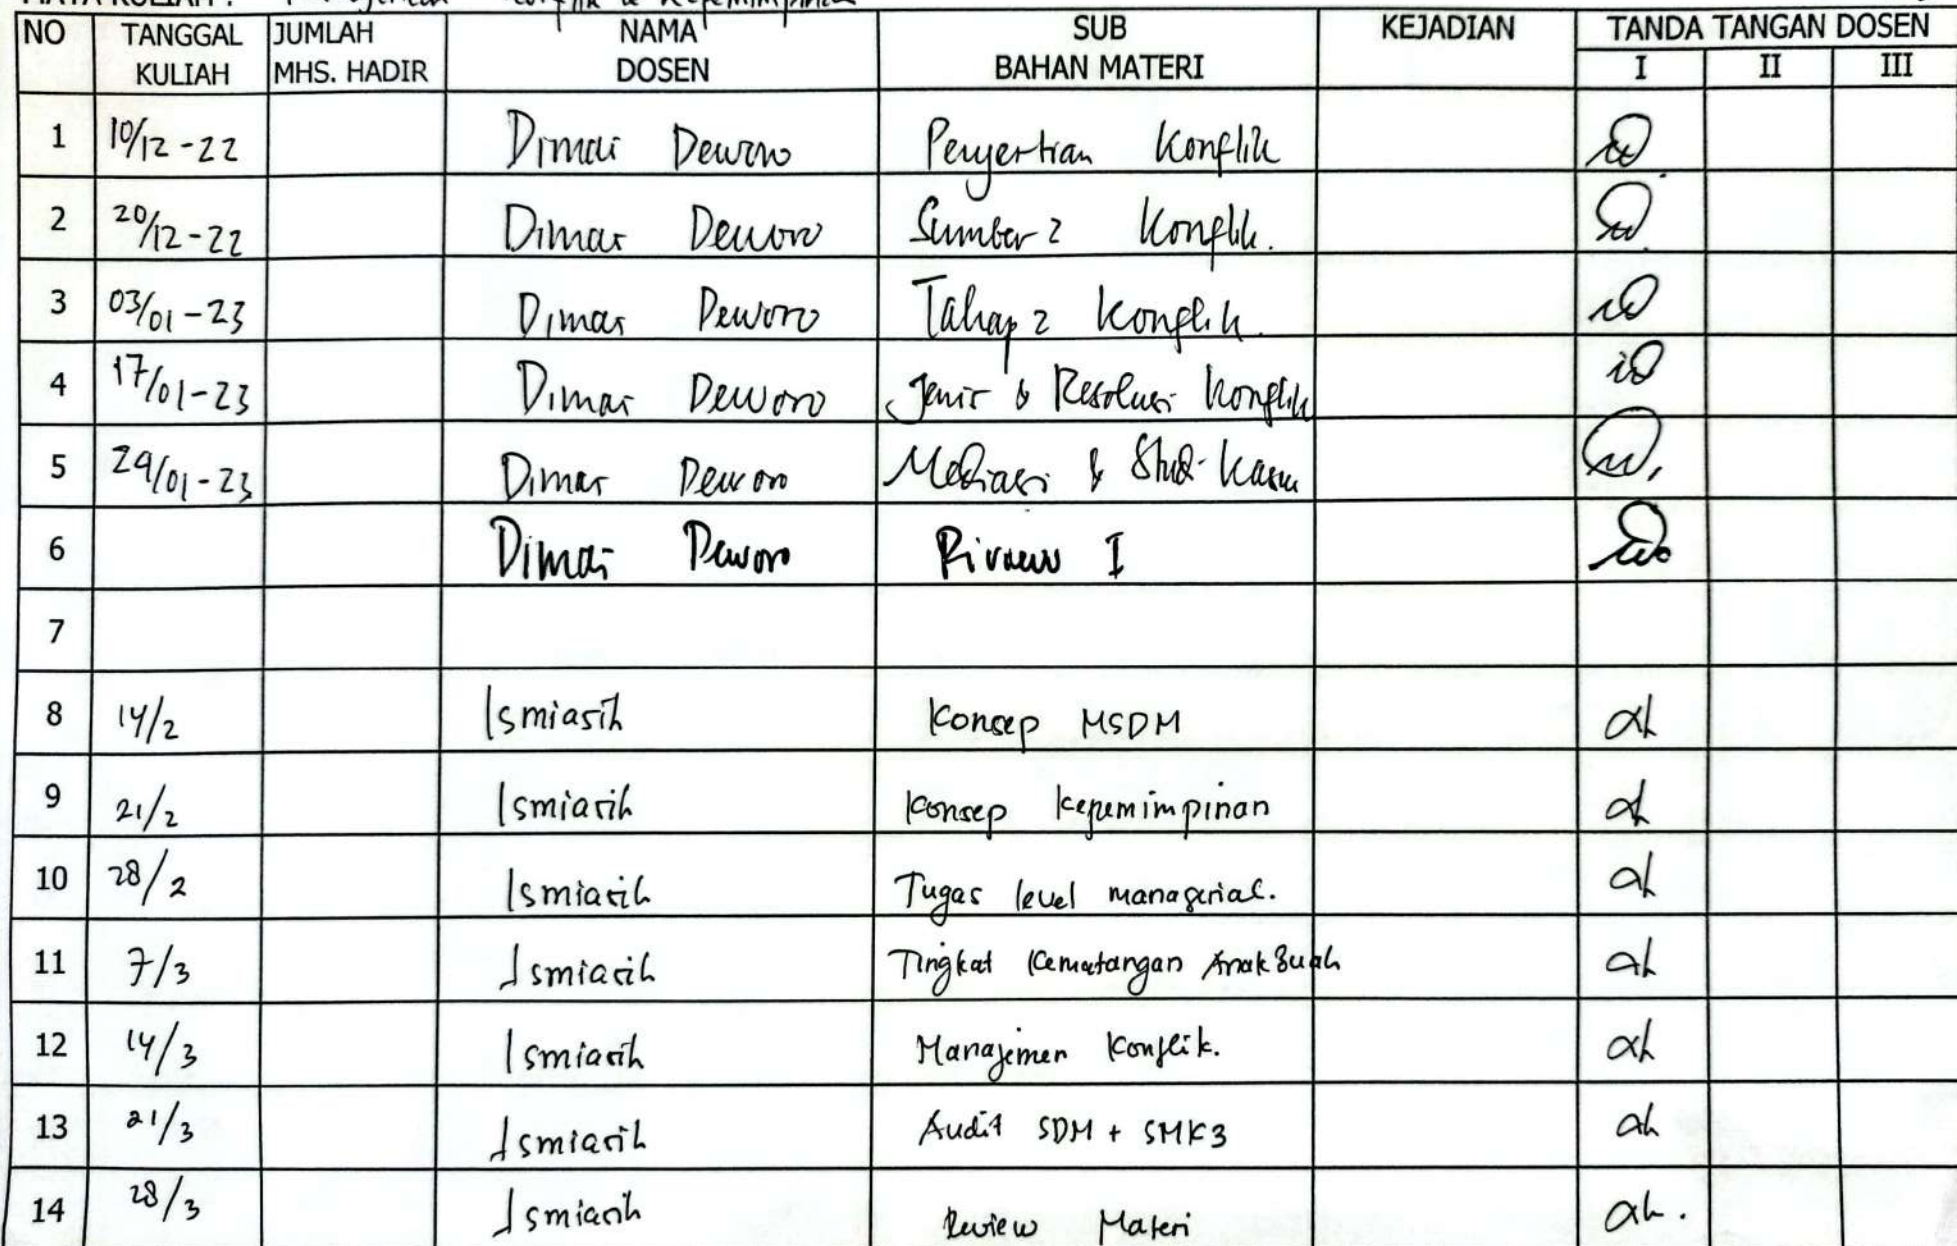 MATA KULIAH : Konflik & Kepemimpinan
NO TANGGAL KULIAH JUMLAH MHS. HADIR NAMA DOSEN SUB BAHAN MATERI KEJADIAN TANDA TANGAN DOSEN
I II III
1 10/12-22 Dimas Deworo Pengertian Konflik
2 20/12-22 Dimas Deworo Sumber2 Konflik.
3 03/01-23 Dimas Deworo Tahap2 Konflik.
4 17/01-23 Dimas Deworo Jenis & Resolusi Konflik
5 29/01-23 Dimas Deworo Mediasi & Studi Kasus
6 Dimas Deworo Riview I
7
8 14/2 Ismiasih Konsep MSDM
9 21/2 Ismiasih Konsep Kepemimpinan
10 28/2 Ismiasih Tugas level managerial.
11 7/3 Ismiasih Tingkat Kematangan Anak Buah
12 14/3 Ismiasih Manajemen Konflik.
13 21/3 Ismiasih Audit SDM + SMK3
14 28/3 Ismiasih Review Materi